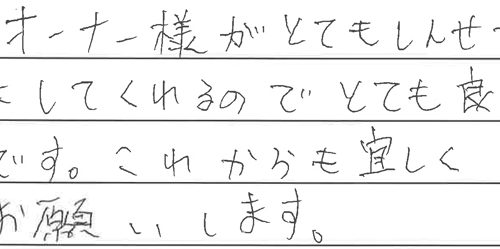 オーナー様がとてもしんせつ
にしてくれるのでとても良
です。これからも宜しく
お願いします。